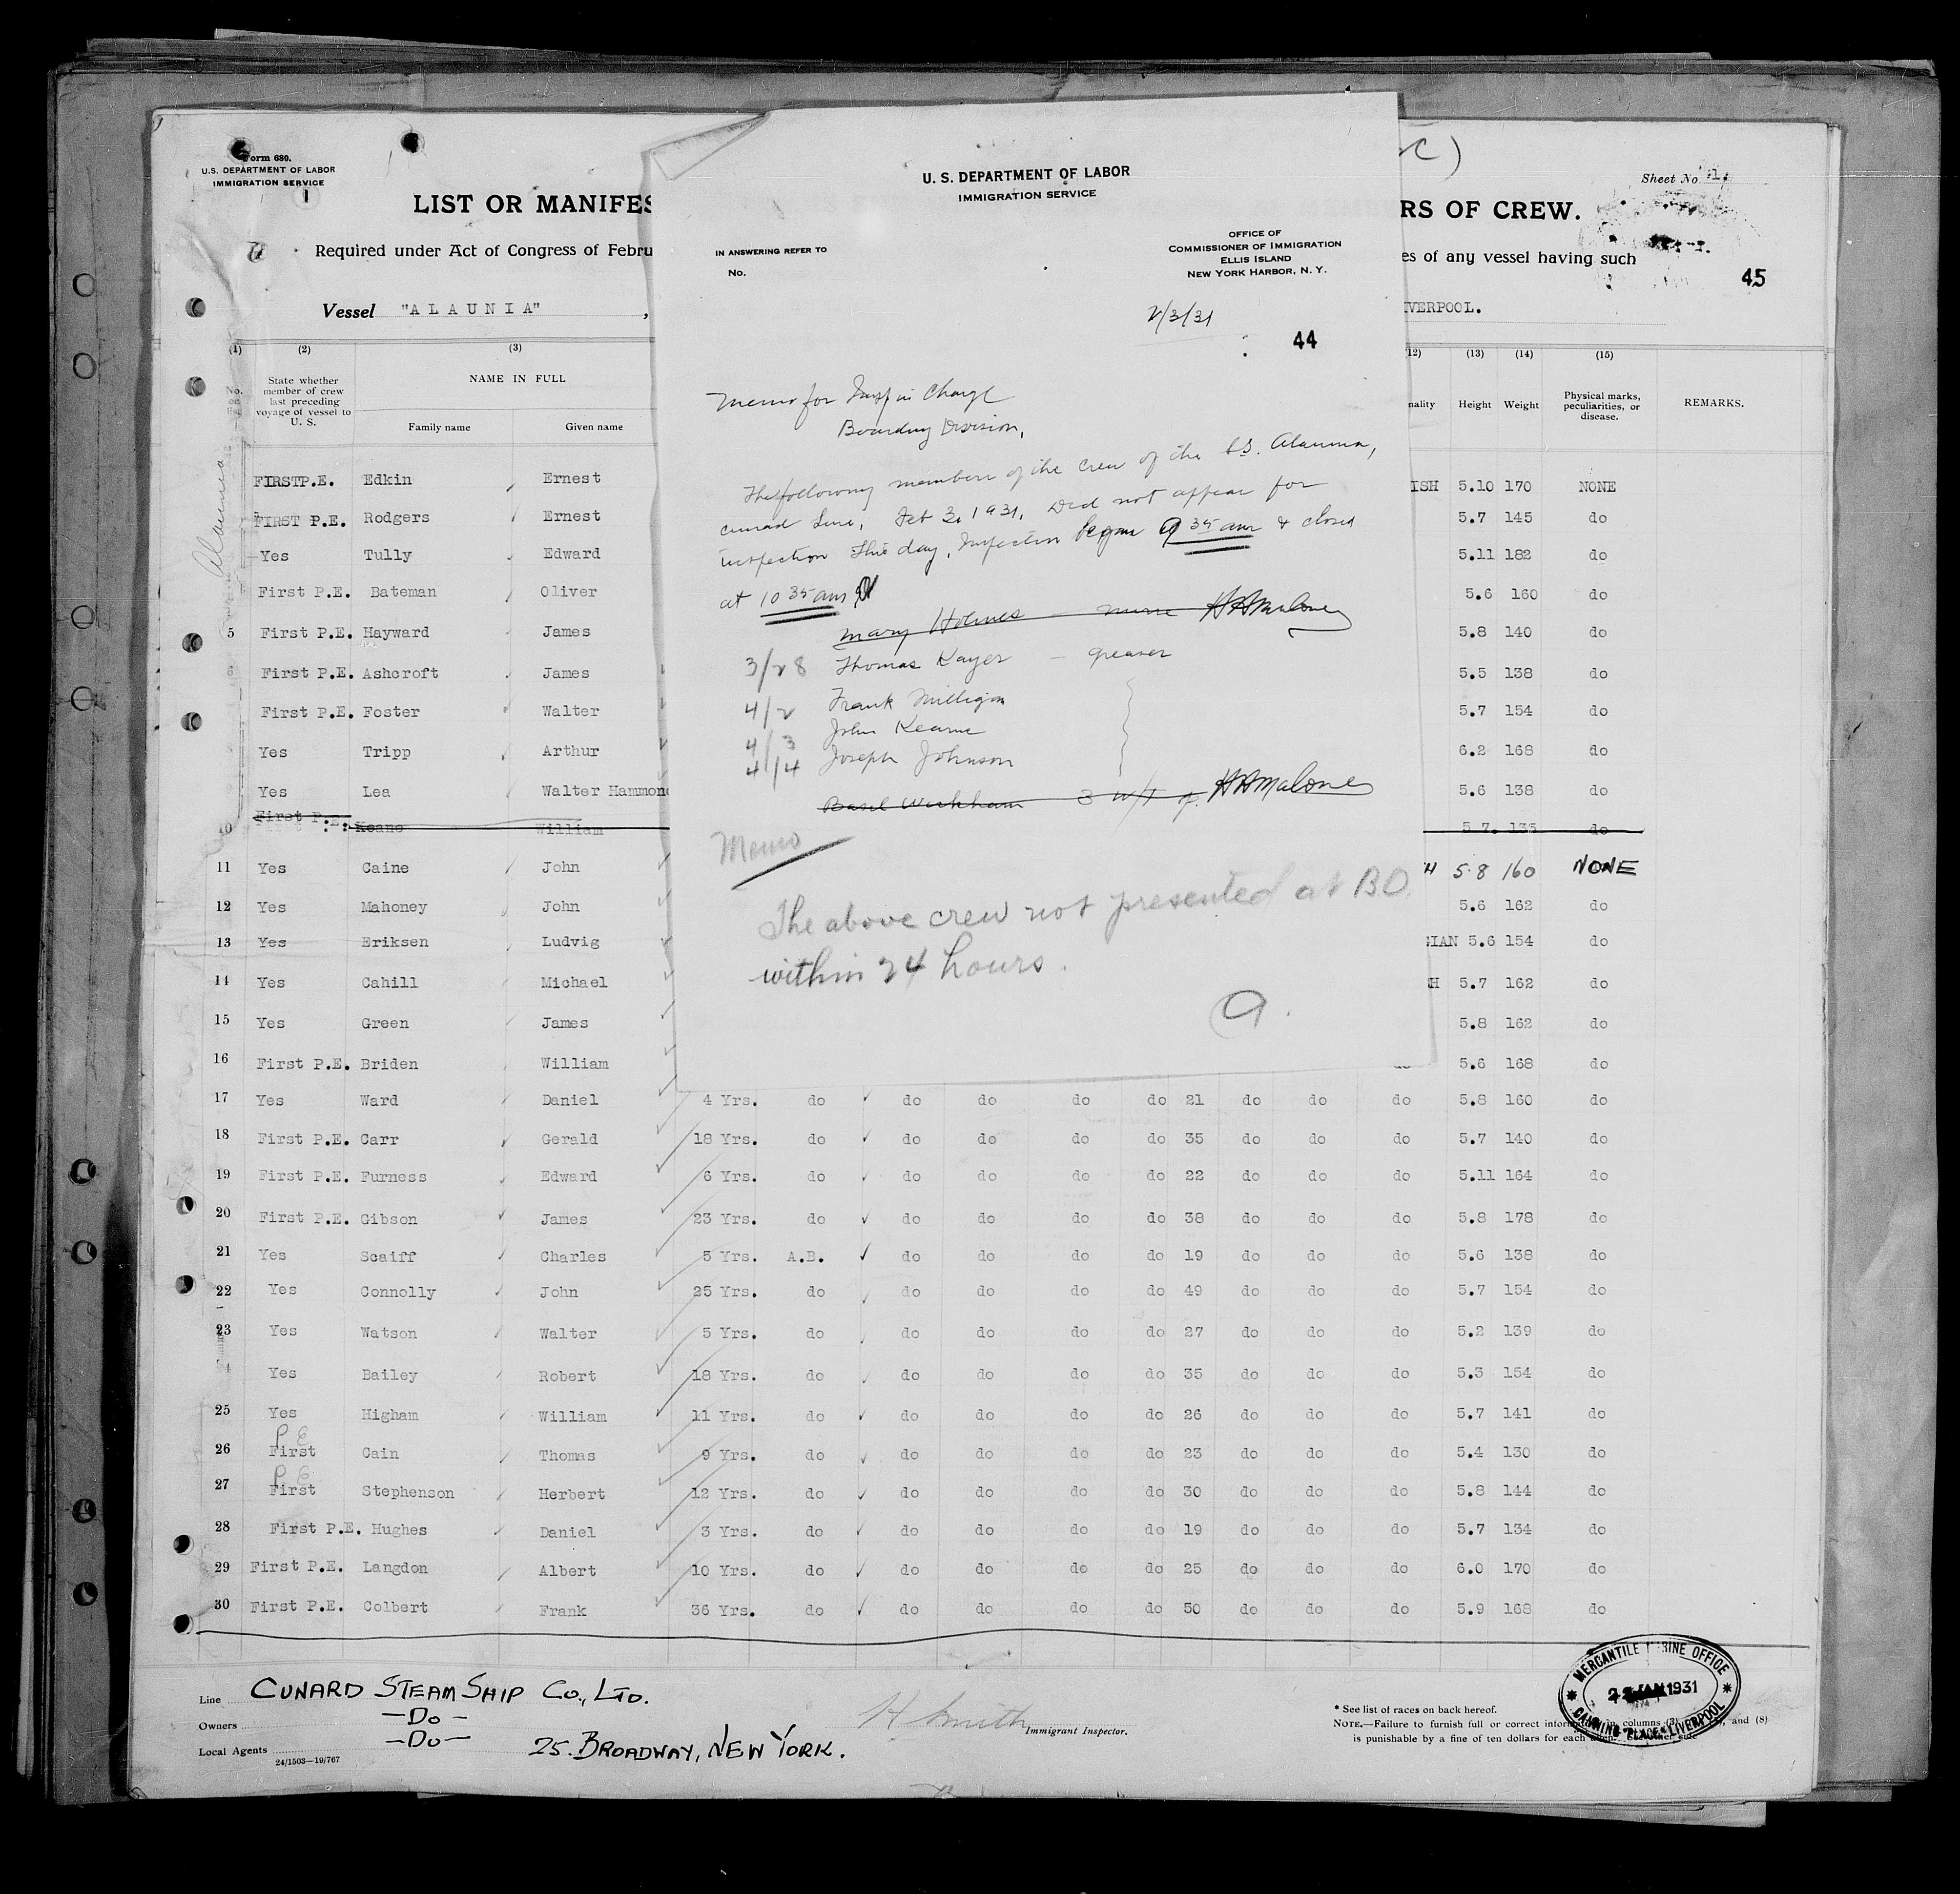 Form 680.
U.S. DEPARTMENT OF LABOR
IMMIGRATION SERVICE
1
LIST OR MANIFES
Required under Act of Congress of Febru
Vessel "ALAUNIA" ,
RS OF CREW.
Sheet No. 1.
es of any vessel having such
45
IVERPOOL.
U. S. DEPARTMENT OF LABOR
IMMIGRATION SERVICE
IN ANSWERING REFER TO
No.
OFFICE OF
COMMISSIONER OF IMMIGRATION
ELLIS ISLAND
NEW YORK HARBOR, N. Y.
2/3/31
44
Memo for Insp in Charge
Boarding Division,
The following members of the crew of the S.S. Alaunia,
Cunard Line, Feb 3, 1931, did not appear for
inspection this day, Inspection began 9 35 am & closed
at 10 35 am
Mary Holmes — nurse HAMalone
3/28 Thomas Kayer — greaser
4/2 Frank Milligan
4/3 John Kearne
4/14 Joseph Johnson
Basil Wickham 3 w/t op. HAMalone
Memo
The above crew not presented at BO.
within 24 hours.
a.
Alaunia
(1) (2) (3) (12) (13) (14) (15)
No. on list State whether member of crew last preceding voyage of vessel to U. S. NAME IN FULL Family name Given name nality Height Weight Physical marks, peculiarities, or disease. REMARKS.
FIRST P.E. Edkin Ernest ISH 5.10 170 NONE
FIRST P.E. Rodgers Ernest 5.7 145 do
Yes Tully Edward 5.11 182 do
First P.E. Bateman Oliver 5.6 160 do
5 First P.E. Hayward James 5.8 140 do
6 First P.E. Ashcroft James 5.5 138 do
First P.E. Foster Walter 5.7 154 do
Yes Tripp Arthur 6.2 168 do
Yes Lea Walter Hammond 5.6 138 do
10 First P.E. Keane William 5 7. 135 do
11 Yes Caine John H 5.8 160 NONE
12 Yes Mahoney John 5.6 162 do
13 Yes Eriksen Ludvig GIAN 5.6 154 do
14 Yes Cahill Michael H 5.7 162 do
15 Yes Green James 5.8 162 do
16 First P.E. Briden William do 5.6 168 do
17 Yes Ward Daniel 4 Yrs. do do do do do 21 do do do 5.8 160 do
18 First P.E. Carr Gerald 18 Yrs. do do do do do 35 do do do 5.7 140 do
19 First P.E. Furness Edward 6 Yrs. do do do do do 22 do do do 5.11 164 do
20 First P.E. Gibson James 23 Yrs. do do do do do 38 do do do 5.8 178 do
21 Yes Scaiff Charles 5 Yrs. A.B. do do do do 19 do do do 5.6 138 do
22 Yes Connolly John 25 Yrs. do do do do do 49 do do do 5.7 154 do
23 Yes Watson Walter 5 Yrs. do do do do do 27 do do do 5.2 139 do
4 Yes Bailey Robert 18 Yrs. do do do do do 35 do do do 5.3 154 do
25 Yes Higham William 11 Yrs. do do do do do 26 do do do 5.7 141 do
26 First P E Cain Thomas 9 Yrs. do do do do do 23 do do do 5.4 130 do
27 First P E Stephenson Herbert 12 Yrs. do do do do do 30 do do do 5.8 144 do
28 First P.E. Hughes Daniel 3 Yrs. do do do do do 19 do do do 5.7 134 do
29 First P.E. Langdon Albert 10 Yrs. do do do do do 25 do do do 6.0 170 do
30 First P.E. Colbert Frank 36 Yrs. do do do do do 50 do do do 5.9 168 do
Line CUNARD STEAMSHIP CO., LTD.
Owners —Do—
Local Agents —Do— 25. BROADWAY, NEW YORK.
24/1503—19/767
H Smith Immigrant Inspector.
* See list of races on back hereof.
NOTE.—Failure to furnish full or correct information in columns (3) and (8)
is punishable by a fine of ten dollars for each
MERCANTILE MARINE OFFICE
JAN 1931
CANNING PLACE LIVERPOOL